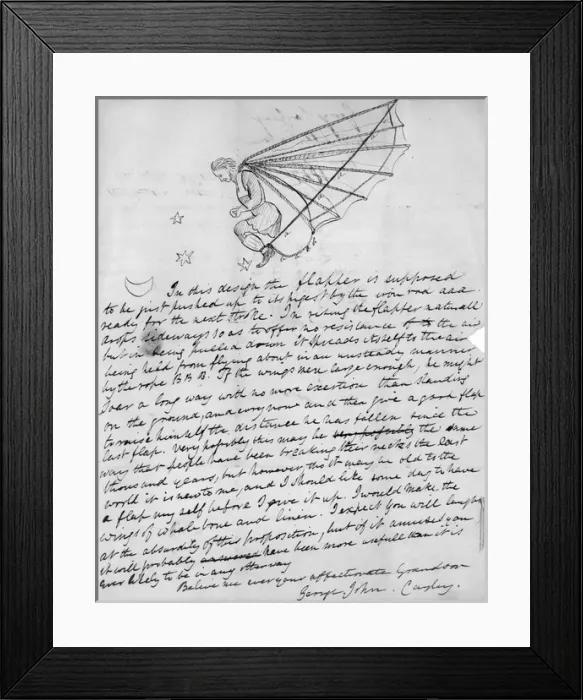 In this design the flapper is supposed
to be just pushed up to its highest by the iron rod aaa
ready for the next stroke. In rising the flapper naturall
drops sideways so as to offer no resistance to the air
but in being pulled down it spreads itself to the air
being held from flying about in an unsteady manner
by the rope B B B. If the wings were large enough, he might
soar a long way with no more exertion than standing
on the ground, and every now and then give a good flap
to raise himself the distance he has fallen since the
last flap. Very probably this may be very probably the same
way that people have been breaking their necks the last
thousand years, but however, tho it may be old to the
world it is new to me, and I should like some day to have
a flap my self before I give it up. I would make the
wings of whale bone and linen. I expect you will laugh
at the absurdity of this proposition, but if it amuses you
it will probably answered have been more usefull than it is
ever likely to be in any other way
Believe me ever your affectionate Grandson
George John. Cayley.